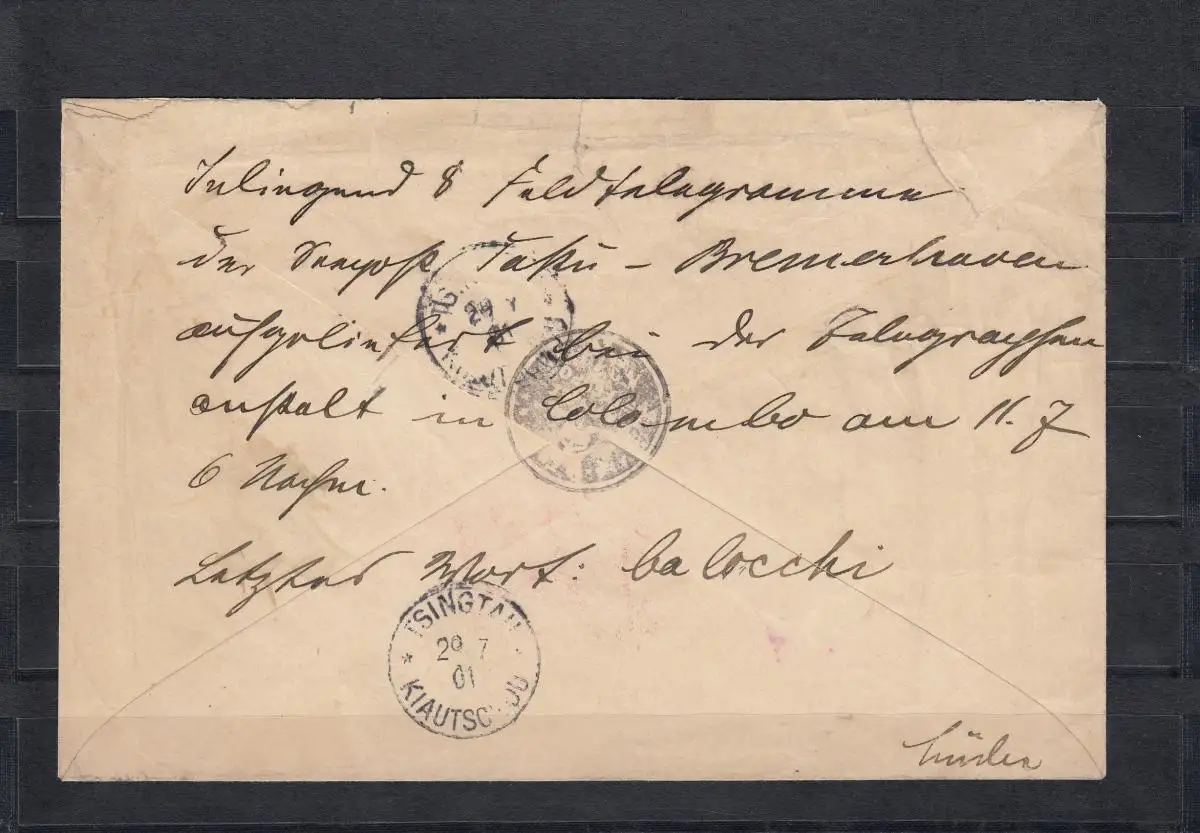 Inliegend 8 Feldtelegramme
der Seepost Taku - Bremerhaven
aufgeliefert bei der Telegraphen
anstalt in Colombo am 11. 7
6 Nachm.
Letztes Wort: balocchi
TSINGTAU
29 7
01
KIAUTSCHOU